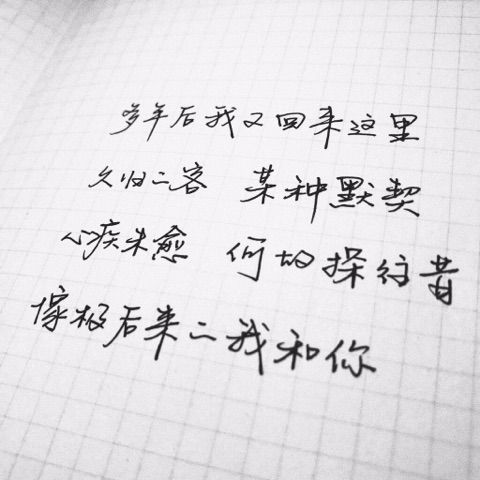 多年后我又回来这里
久归二客 某种默契
心疾未愈 何故探往昔
像极后来二我和你